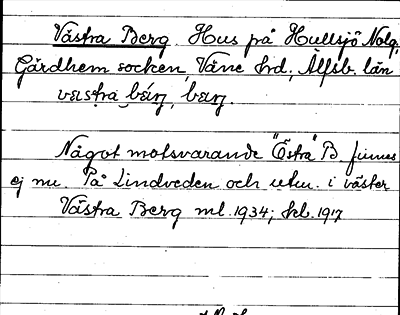 Västra Berg. Hus på Hullsjö Nolg.
Gärdhem socken, Väne hrd., Älfsb. län
västra bärj, bärj.
Något motsvarande "Östra" B. finnes
ej nu. På Lindveden och utm. i väster
Västra Berg ml. 1934; skl. 1917